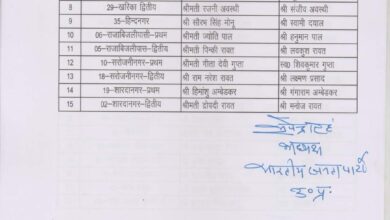 8 29–खरिका द्वितीय श्रीमती रजनी अवस्थी श्री संजीव अवस्थी
9 35–हिन्दनगर श्री सौरभ सिंह मोनू श्री स्वामी दयाल
10 06–राजाबिजलीपासी–प्रथम श्रीमती ज्योति पाल श्री हनुमान पाल
11 05–राजाबिजलीपासी–द्वितीय श्रीमती पिन्की रावत श्री लवकुश रावत
12 10–सरोजनीनगर–प्रथम श्रीमती गीता देवी गुप्ता स्व0 शिवकुमार गुप्ता
13 18–सरोजनीनगर–द्वितीय श्री राम नरेश रावत श्री लक्ष्मण प्रसाद
14 19–शारदानगर–प्रथम श्री हिमांशु अम्बेडकर श्री गंगाराम अम्बेडकर
15 02–शारदानगर–द्वितीय श्रीमती द्रोपदी रावत श्री मनोज रावत
अध्यक्ष
भारतीय जनता पार्टी
उ०प्र०